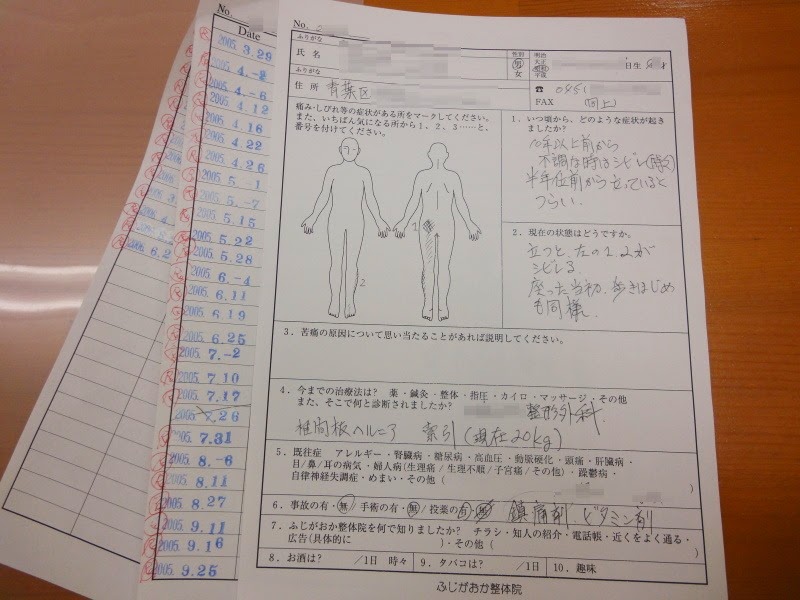 No.
Date
2005. 3. 29
2005. 4. -2
2005. 4. -6
2005. 4. 12
2005. 4. 16
2005. 4. 22
2005. 4. 26
2005. 5. 1
2005. 5. -7
2005. 5. 15
2005. 5. 22
2005. 5. 28
2005. 6. -4
2005. 6. 11
2005. 6 19
2005. 6. 25
2005. 7. -2
2005. 7. 10
2005. 7. 17
2005. 7. 26
2005. 7. 31
2005. 8. -6
2005. 8. 11
2005. 8. 27
2005. 9. 11
2005. 9. 16
2005. 9. 25
2005. 6. 2
No.
ふりがな
氏 名
性別 男 女
明治 大正 昭和 平成
日生 才
ふりがな
住 所 青葉区
☎ 045(
FAX (同上)
痛み・しびれ等の症状がある所をマークしてください。
また、いちばん気になる所から1、2、3……と、
番号を付けてください。
1
2
1．いつ頃から、どのような症状が起き
ましたか?
10年以上前から
不調な時はシビレ(時々)
半年位前から立っていると
つらい.
2．現在の状態はどうですか。
立つと、左の1.2が
シビレる
座った当初、歩きはじめ
も同様.
3．苦痛の原因について思い当たることがあれば説明してください。
4．今までの治療法は? 薬・鍼灸・整体・指圧・カイロ・マッサージ・その他
また、そこで何と診断されましたか? 整形外科
椎間板ヘルニア 索引(現在20kg)
5．既往症 アレルギー・腎臓病・糖尿病・高血圧・動脈硬化・頭痛・肝臓病・
目/鼻/耳の病気・婦人病(生理痛/生理不順/子宮痛/その他)・躁鬱病・
自律神経失調症・めまい・その他(
6．事故の有・無/手術の有・無/投薬の有・無 鎮痛剤 ビタミン剤
7．ふじがおか整体院を何で知りましたか? チラシ・知人の紹介・電話帳・近くをよく通る・
広告(具体的に )・その他( )
8．お酒は? /1日 時々 9．タバコは? /1日 10．趣味
ふじがおか整体院